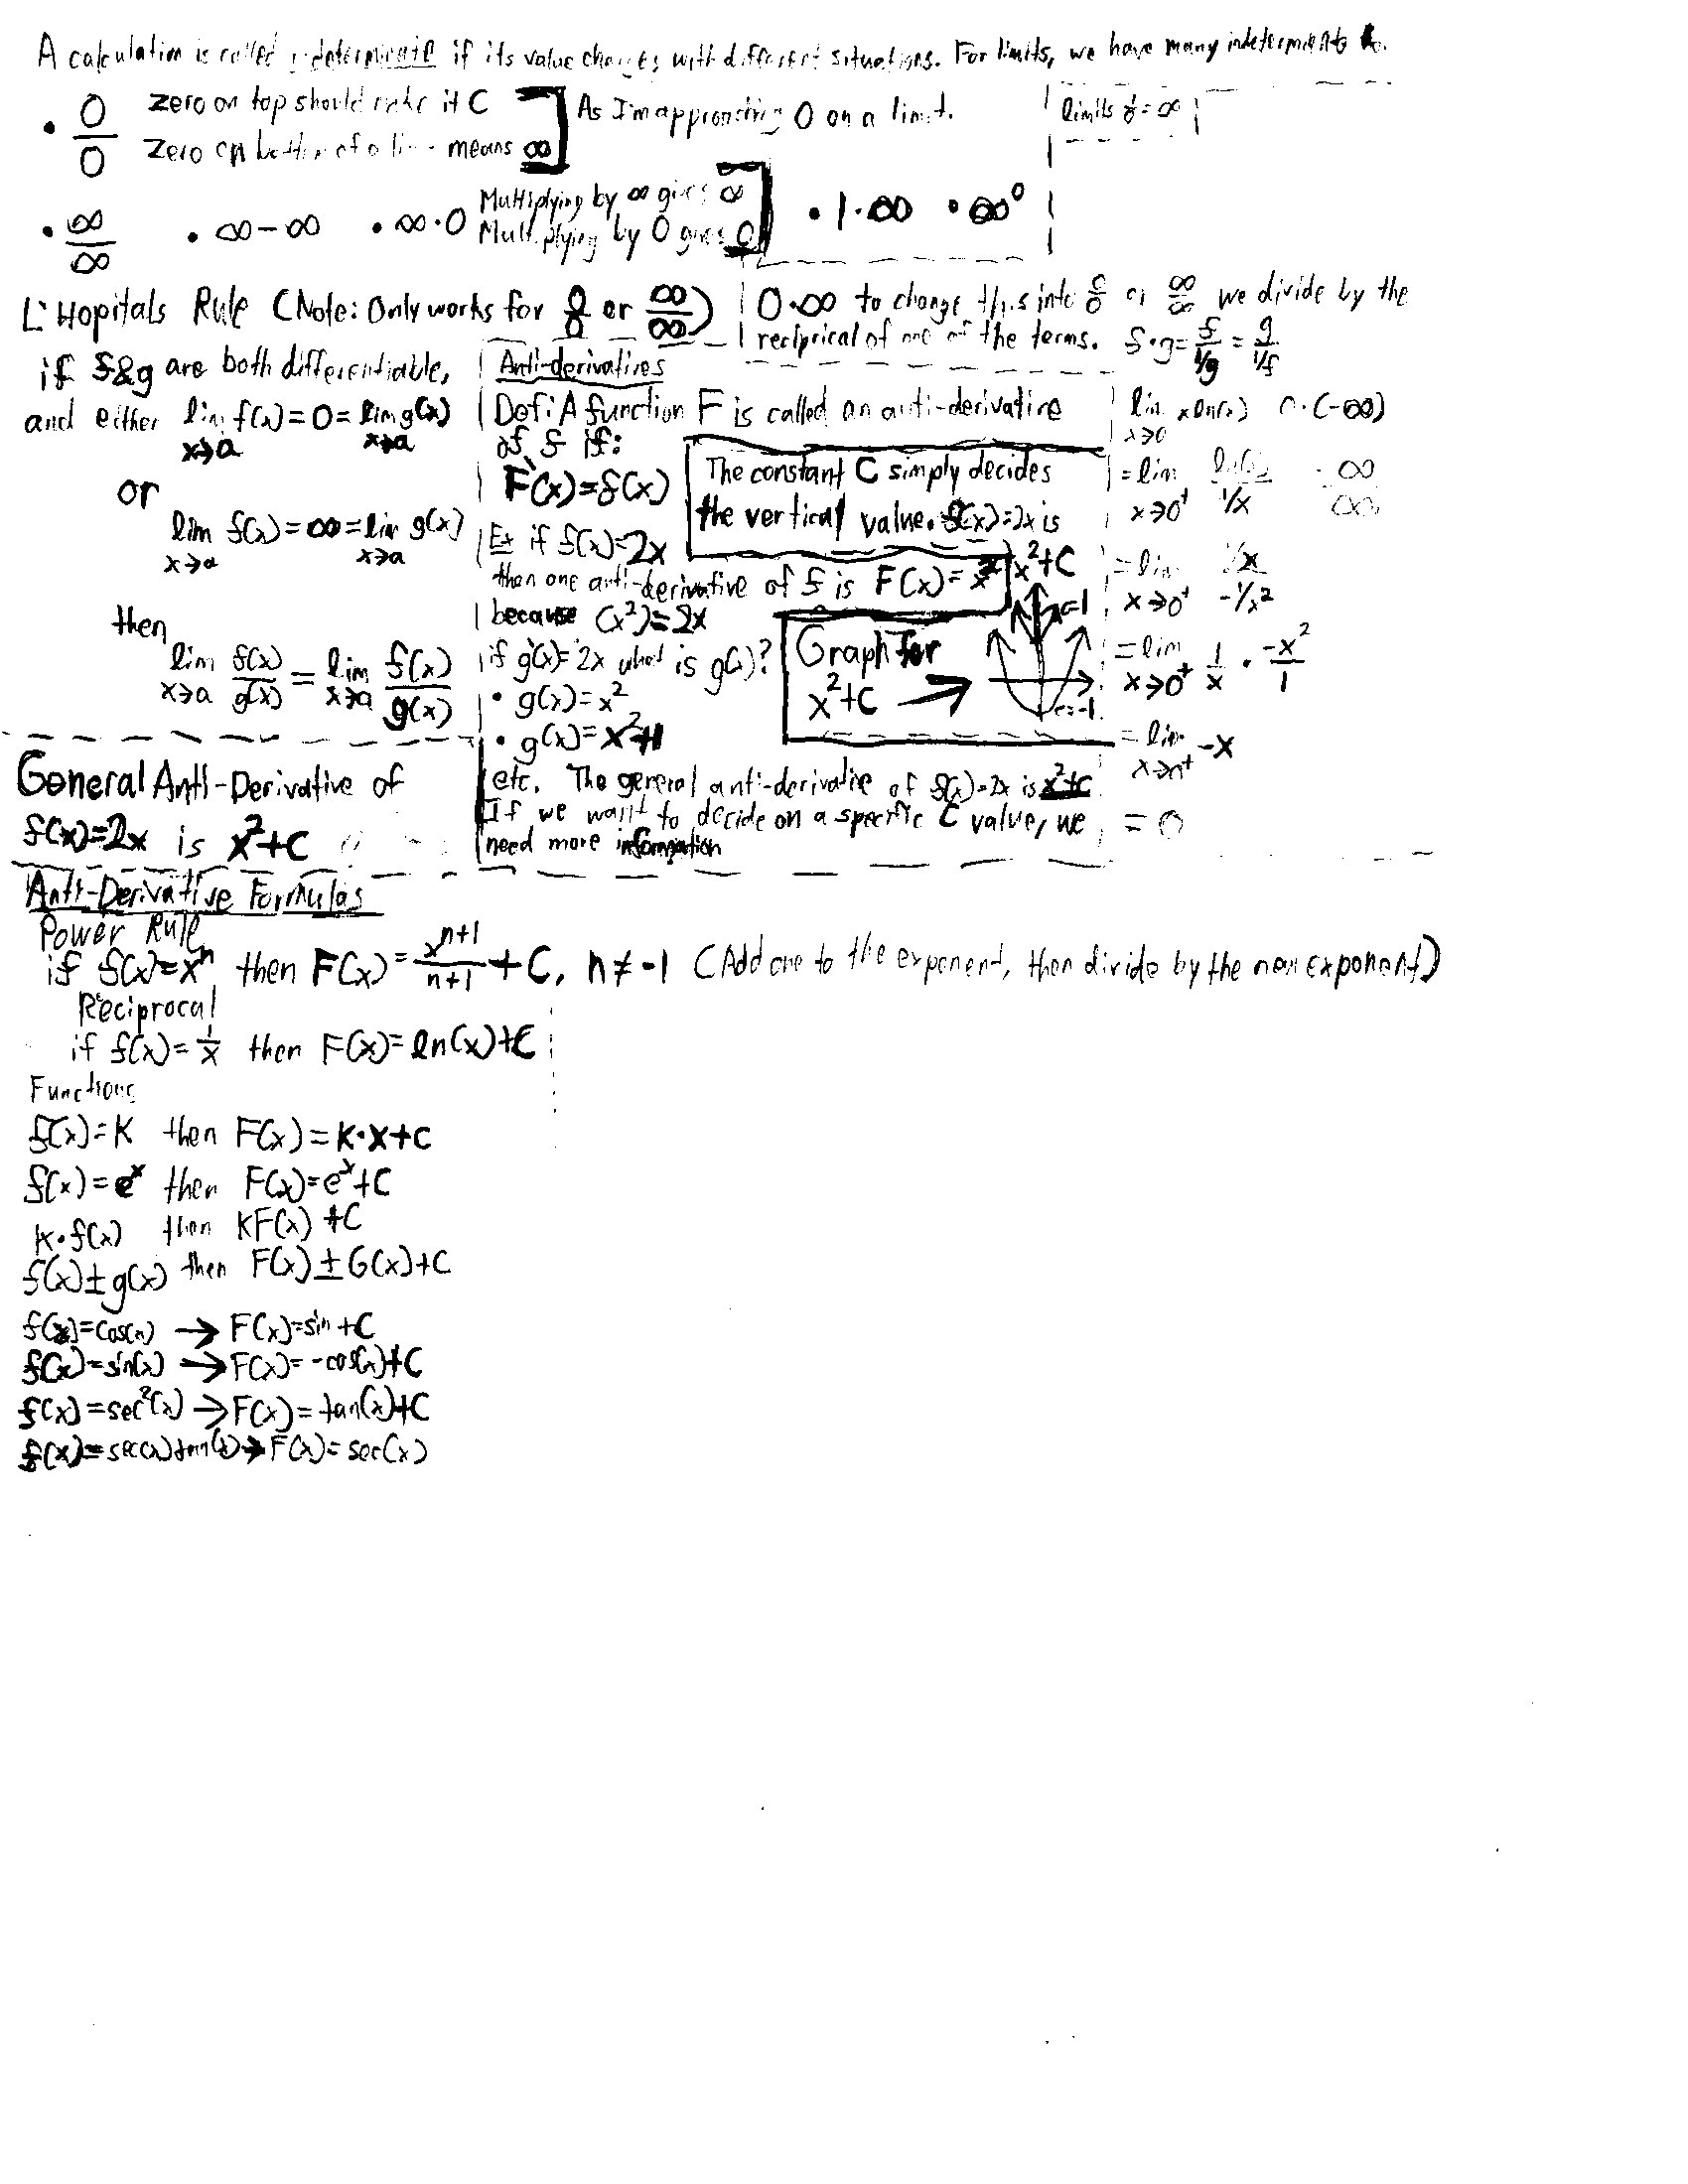 A calculation is called indeterminate if its value changes with different situations. For limits, we have many indeterminate
• 0/0 zero on top should make it 0
Zero on bottom of a means ∞
As I'm approaching 0 on a limit.
limits = ∞
• ∞/∞ • ∞-∞ • ∞·0 Multiplying by ∞ gives ∞
Multiplying by 0 gives 0
• 1·∞ • ∞⁰
L'Hopitals Rule (Note: Only works for 0/0 or ∞/∞)
if f&g are both differentiable,
and either lim x→a f(x)=0=lim x→a g(x)
or
lim x→a f(x)=∞=lim x→a g(x)
then
lim x→a f(x)/g(x) = lim x→a f(x)/g(x)
0·∞ to change this into 0/0 or ∞/∞ we divide by the
reciprical of one of the terms. f·g= f/1/g = g/1/f
Anti-derivatives
Def: A function F is called an anti-derivative
of f if:
F'(x)=f(x)
The constant C simply decides
the vertical value. f(x)=2x is
x²+C
Ex if f(x)=2x
then one anti-derivative of f is F(x)=x²
because (x²)'=2x
if g'(x)=2x what is g(x)?
• g(x)=x²
• g(x)=x²+1
Graph for
x²+C →
c=1
c=-1
etc. The general anti-derivative of f(x)=2x is x²+C
If we want to decide on a specific C value, we
need more information
lim x→0 x ln(x) 0·(-∞)
=lim x→0⁺ ln(x)/1/x -∞/∞
=lim x→0⁺ 1/x/-1/x²
=lim x→0⁺ 1/x · -x²/1
=lim x→0⁺ -x
= 0
General Anti-Derivative of
f(x)=2x is x²+C
Anti-Derivative Formulas
Power Rule
if f(x)=xⁿ then F(x)= xⁿ⁺¹/n+1 + C, n≠-1 (Add one to the exponent, then divide by the new exponent)
Reciprocal
if f(x)=1/x then F(x)=ln(x)+C
Functions
f(x)=K then F(x)=K·x+C
f(x)=eˣ then F(x)=eˣ+C
K·f(x) then KF(x)+C
f(x)±g(x) then F(x)±G(x)+C
f(x)=cos(x) → F(x)=sin+C
f(x)=sin(x) → F(x)=-cos(x)+C
f(x)=sec²(x) → F(x)=tan(x)+C
f(x)=sec(x)tan(x) → F(x)=sec(x)